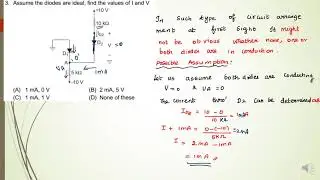 3. Assume the diodes are ideal, find the values of I and V
+10 V
10 kΩ
V =0
D₁
D₂
A
5 kΩ
-10 V
(A) 1 mA, 0 V (B) 2 mA, 5 V
(C) 1 mA, 1 V (D) None of these
In such type of circuit arrange
ment at first sight it might
not be obvious weather none, one or
both diodes are in conduction.
Possible Assumption:
Let us assume both diodes are conducting
V=0 & VA=0
The current thro' D₂ can be determined as
= 10 - 0
10 KΩ
= 1mA
I + 1mA = 0-(-10)
5KΩ
=2mA
I = 2mA - 1mA
= 1mA